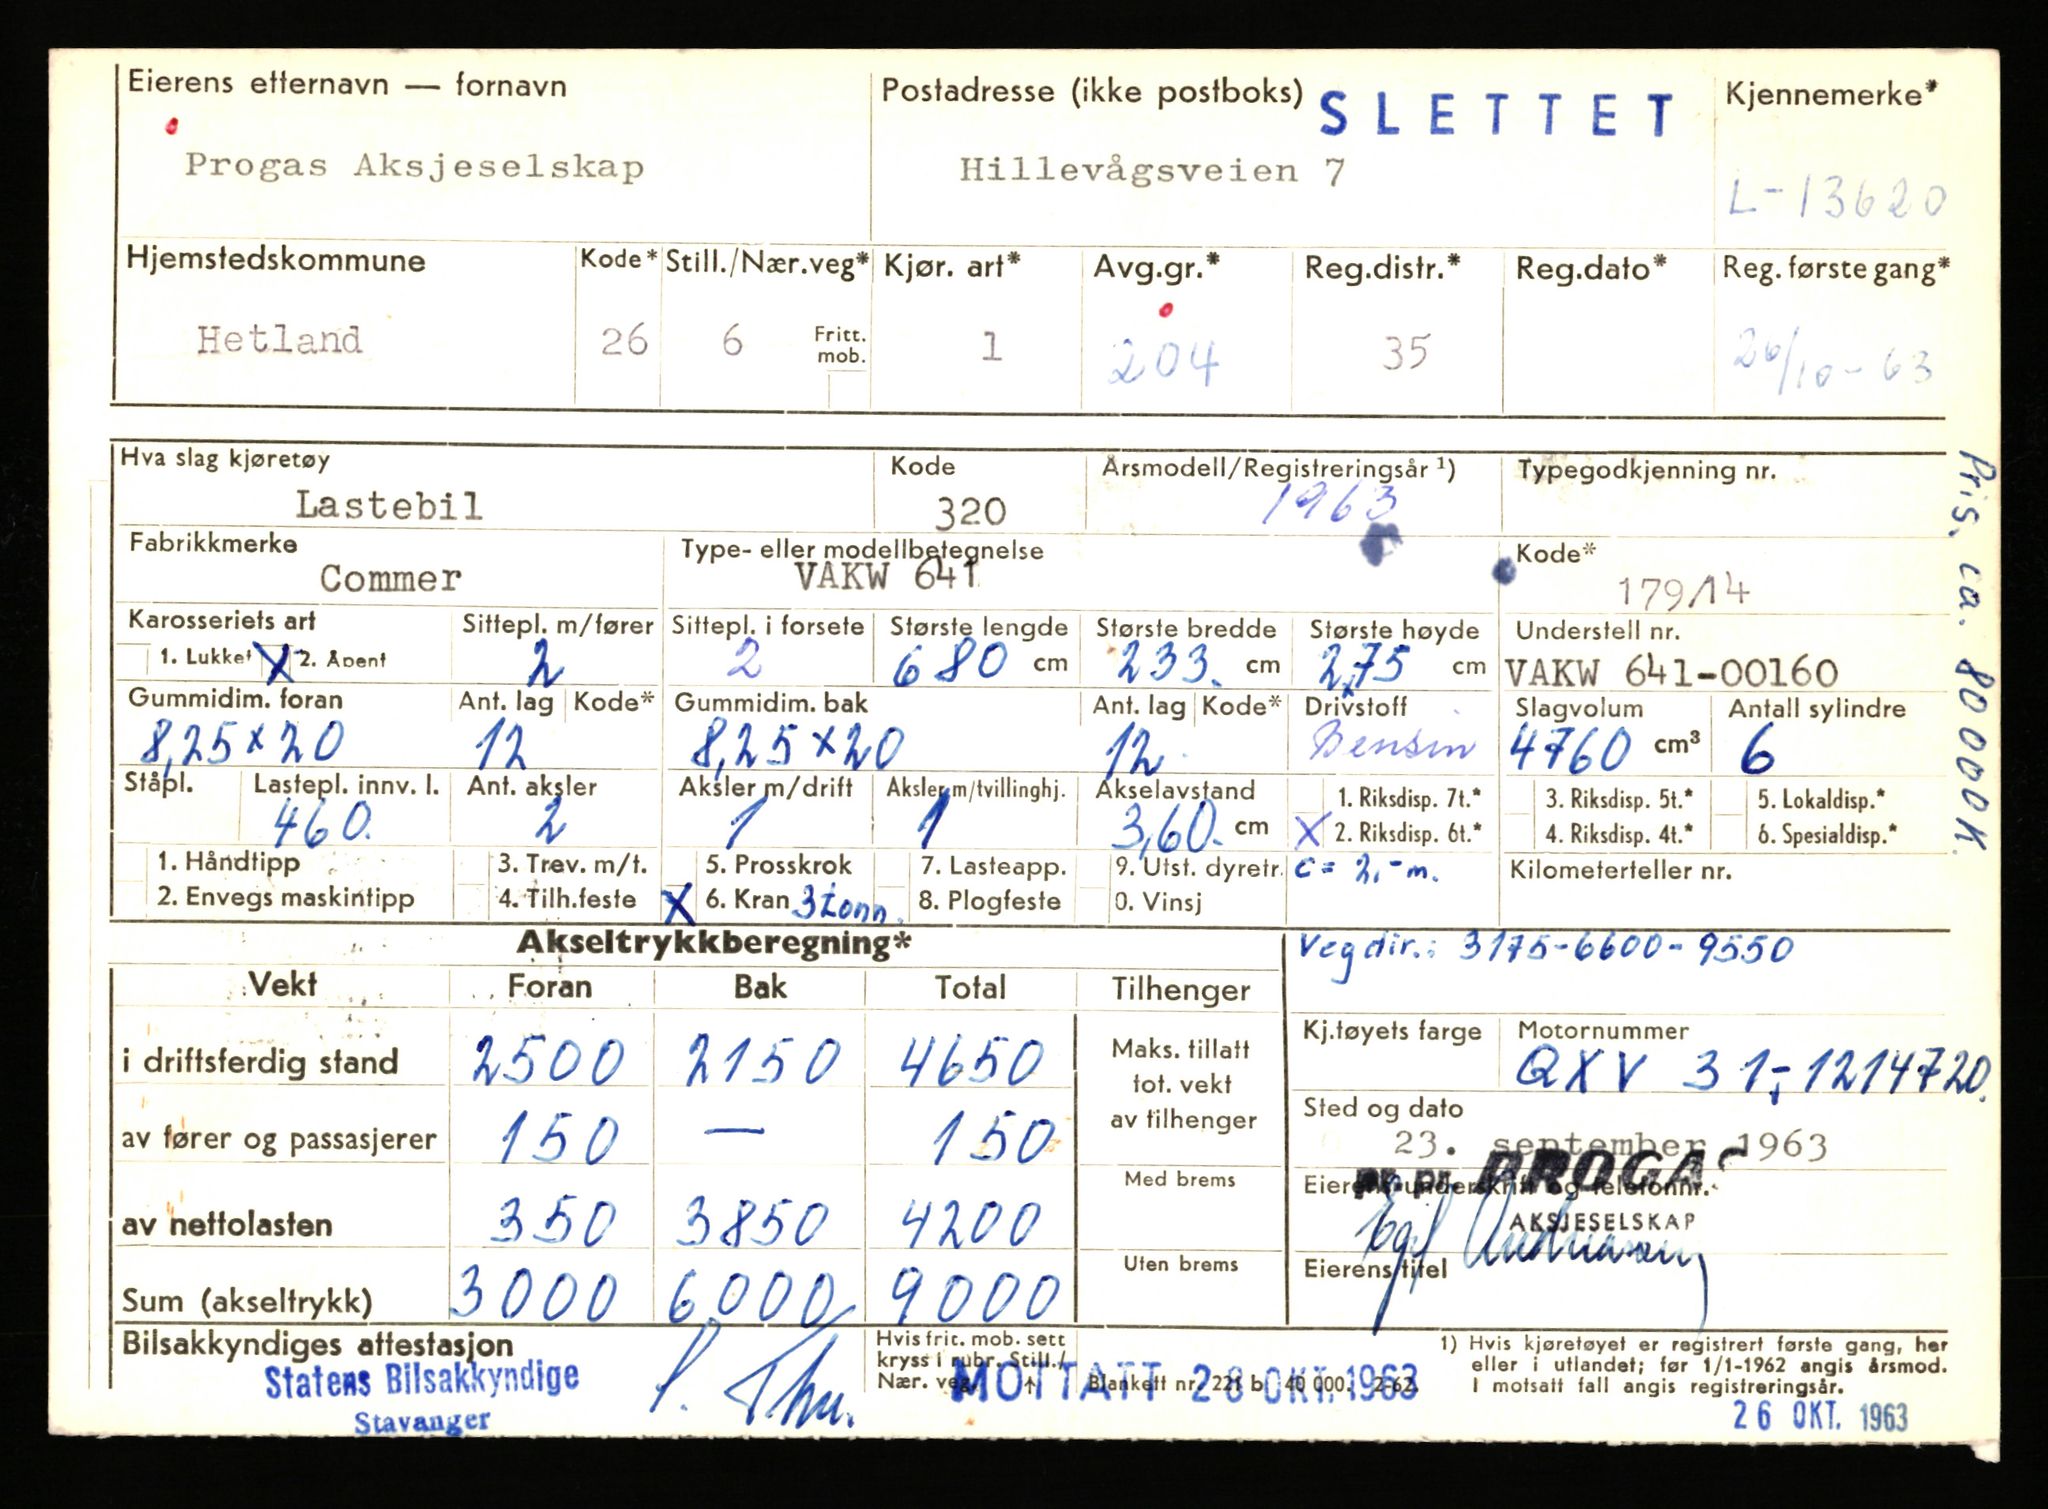 Eierens etternavn — fornavn
Postadresse (ikke postboks)
SLETTET
Kjennemerke*
Progas Aksjeselskap
Hillevågsveien 7
L-13620
Hjemstedskommune
Kode*
Still./Nær.veg*
Kjør. art*
Avg.gr.*
Reg.distr.*
Reg.dato*
Reg. første gang*
Hetland
26
6
Fritt. mob.
1
204
35
26/10-63
Hva slag kjøretøy
Kode
Årsmodell/Registreringsår ¹)
Typegodkjenning nr.
Lastebil
320
1963
Fabrikkmerke
Type- eller modellbetegnelse
Kode*
Commer
VAKW 641
179/14
Karosseriets art
Sittepl. m/fører
Sittepl. i forsete
Største lengde
Største bredde
Største høyde
Understell nr.
1. Lukket X 2. Åpent
2
2
680 cm
233. cm
2,75 cm
VAKW 641-00160
Gummidim. foran
Ant. lag
Kode*
Gummidim. bak
Ant. lag
Kode*
Drivstoff
Slagvolum
Antall sylindre
8,25 x 20
12
8,25 x 20
12
Bensin
4760 cm³
6
Ståpl.
Lastepl. innv. l.
Ant. aksler
Aksler m/drift
Aksler m/tvillinghj.
Akselavstand
1. Riksdisp. 7t.*
3. Riksdisp. 5t.*
5. Lokaldisp.*
460.
2
1
1
3,60. cm
X 2. Riksdisp. 6t.*
4. Riksdisp. 4t.*
6. Spesialdisp.*
1. Håndtipp
3. Trev. m/t.
5. Prosskrok
7. Lasteapp.
9. Utst. dyretr.
c = 2,- m.
Kilometerteller nr.
2. Envegs maskintipp
4. Tilh.feste
X 6. Kran 3 tonn.
8. Plogfeste
0. Vinsj
Pris. ca. 80 000 K.
Akseltrykkberegning*
Vegdir.: 3175-6600-9550
Vekt
Foran
Bak
Total
Tilhenger
Kj.tøyets farge
Motornummer
i driftsferdig stand
2500
2150
4650
Maks. tillatt
tot. vekt
av tilhenger
QXV 31-1214720.
Sted og dato
av fører og passasjerer
150
—
150
23. september 1963
Med brems
pr. pr. PROGAS
Eierens underskrift og telefonnr.
AKSJESELSKAP
av nettolasten
350
3850
4200
Uten brems
Eierens titel
Sum (akseltrykk)
3000
6000
9000
Bilsakkyndiges attestasjon
Statens Bilsakkyndige
Stavanger
Hvis frit. mob. sett
kryss i rubr. Still./
Nær. veg.
↑
Blankett nr. 221 b. 40 000. 2-62.
MOTTATT 28 OKT. 1963
1) Hvis kjøretøyet er registrert første gang, her
eller i utlandet; før 1/1-1962 angis årsmod.
I motsatt fall angis registreringsår.
26 OKT. 1963